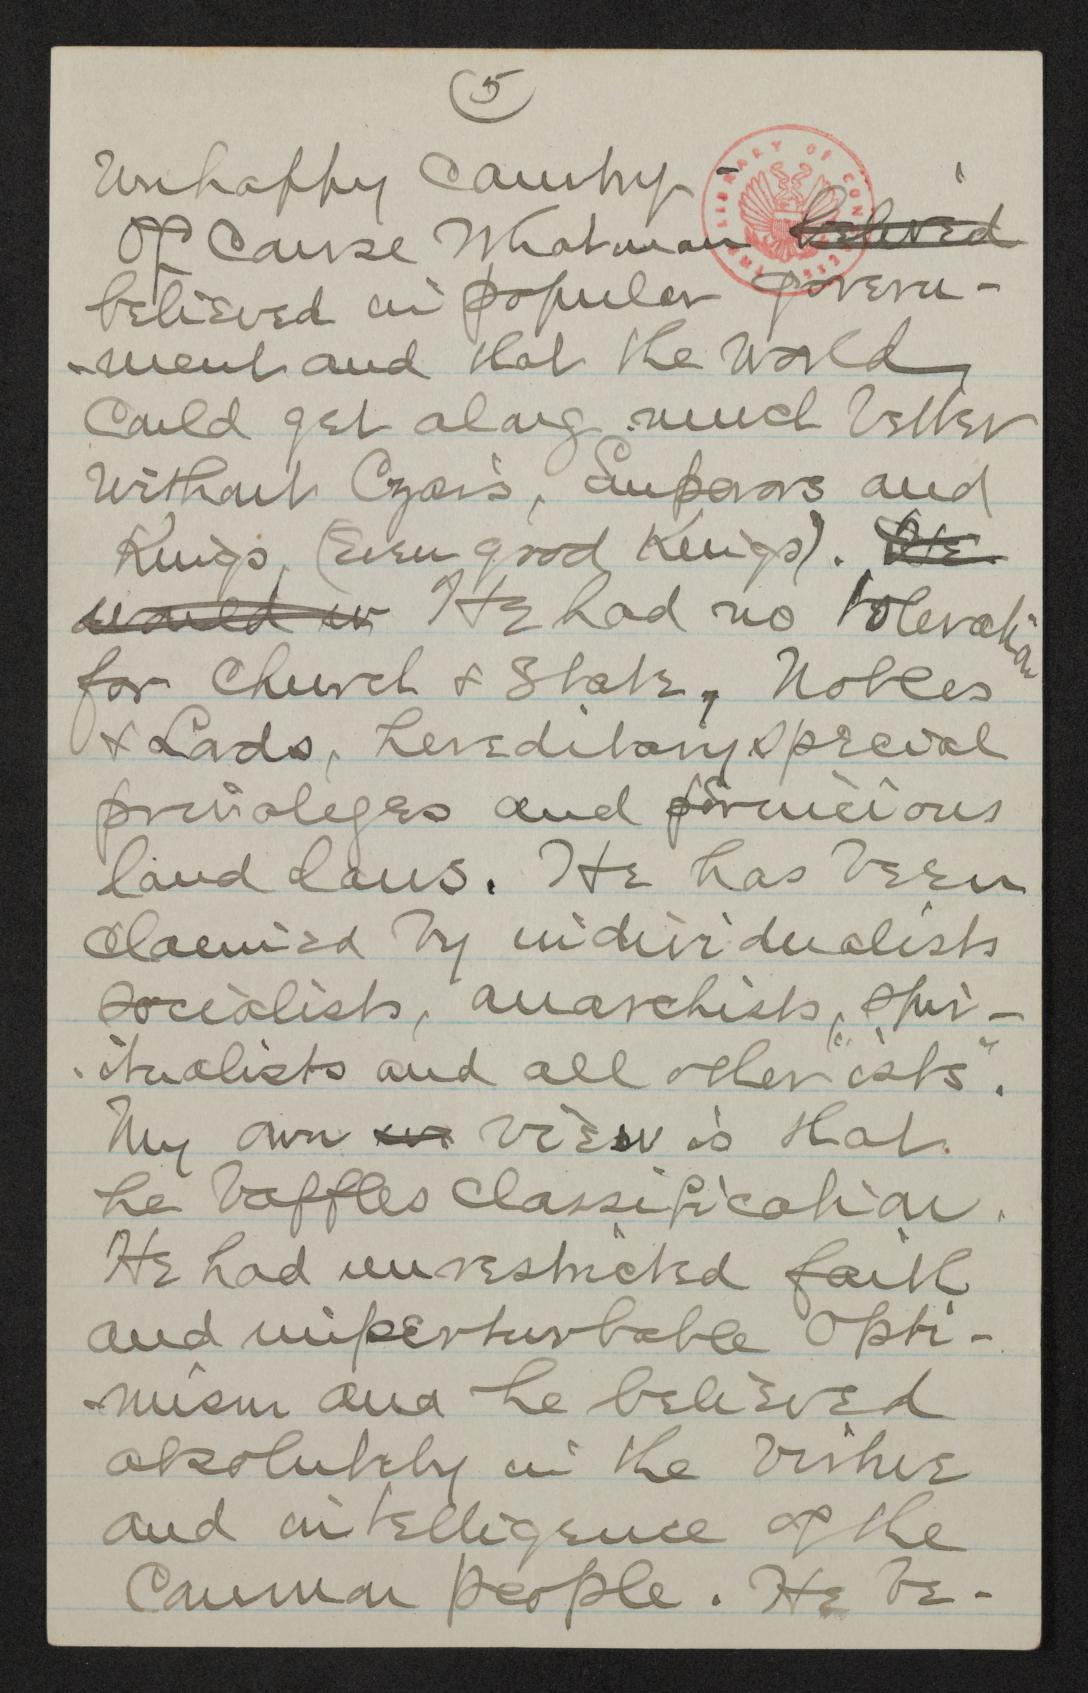 5
Unhappy Country
THE LIBRARY OF CONGRESS
Of Course Whatman beleved
believed in popular govern-
-ment and that the World
Could get along much better
Without Czars, Emperors and
Kings, (Even good Kings). He
would in He had no toleration
for Church & State, Nobles
& Lords, hereditary special
privaleges and pernicious
land laws. He has been
Claimed by individualists
socialists, anarchists, spir-
-itualists and all other "ists".
My own view is that
he baffles classification.
He had unrestricted faith
and imperturbable Opti-
-mism and he believed
absolutely in the Virtue
and intelligence of the
Common people. He be-